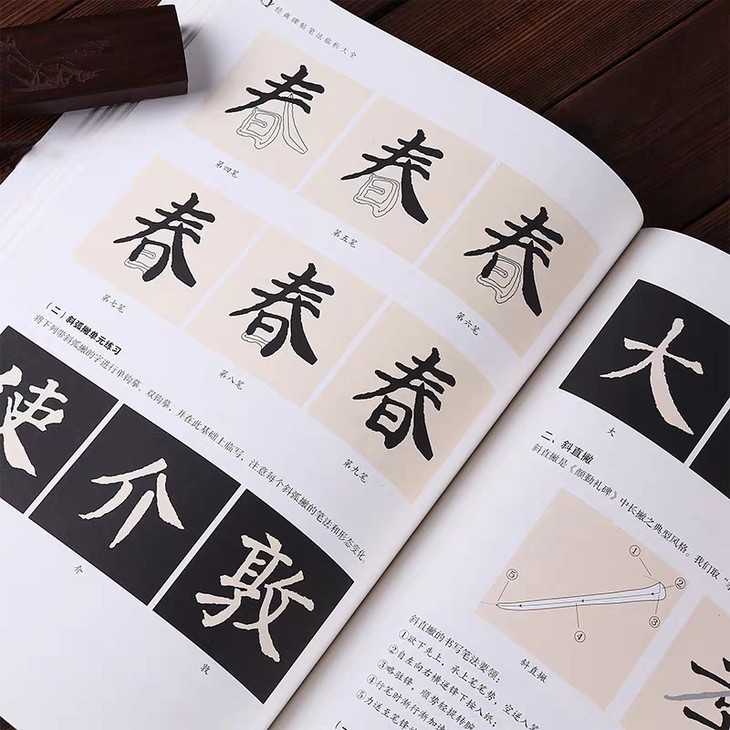 经典碑帖笔法临析大全
春
春
春
第四笔
第五笔
第六笔
春
春
春
第七笔
第八笔
第九笔
(二)斜弧撇单元练习
将下列带斜弧撇的字进行单钩摹、双钩摹,并在此基础上临写,注意每个斜弧撇的笔法和形态变化。
使
介
敦
介
敦
大
大
二、斜直撇
斜直撇是《颜勤礼碑》中长撇之典型风格。我们取“
①
②
③
④
⑤
斜直撇
斜直撇的书写笔法要领:
①欲下先上,承上笔笔势,空逆入笔
②自左向右横逆锋下按入纸;
③略驻锋,顺势轻提转腕
④行笔时渐行渐加速
⑤力送至笔锋